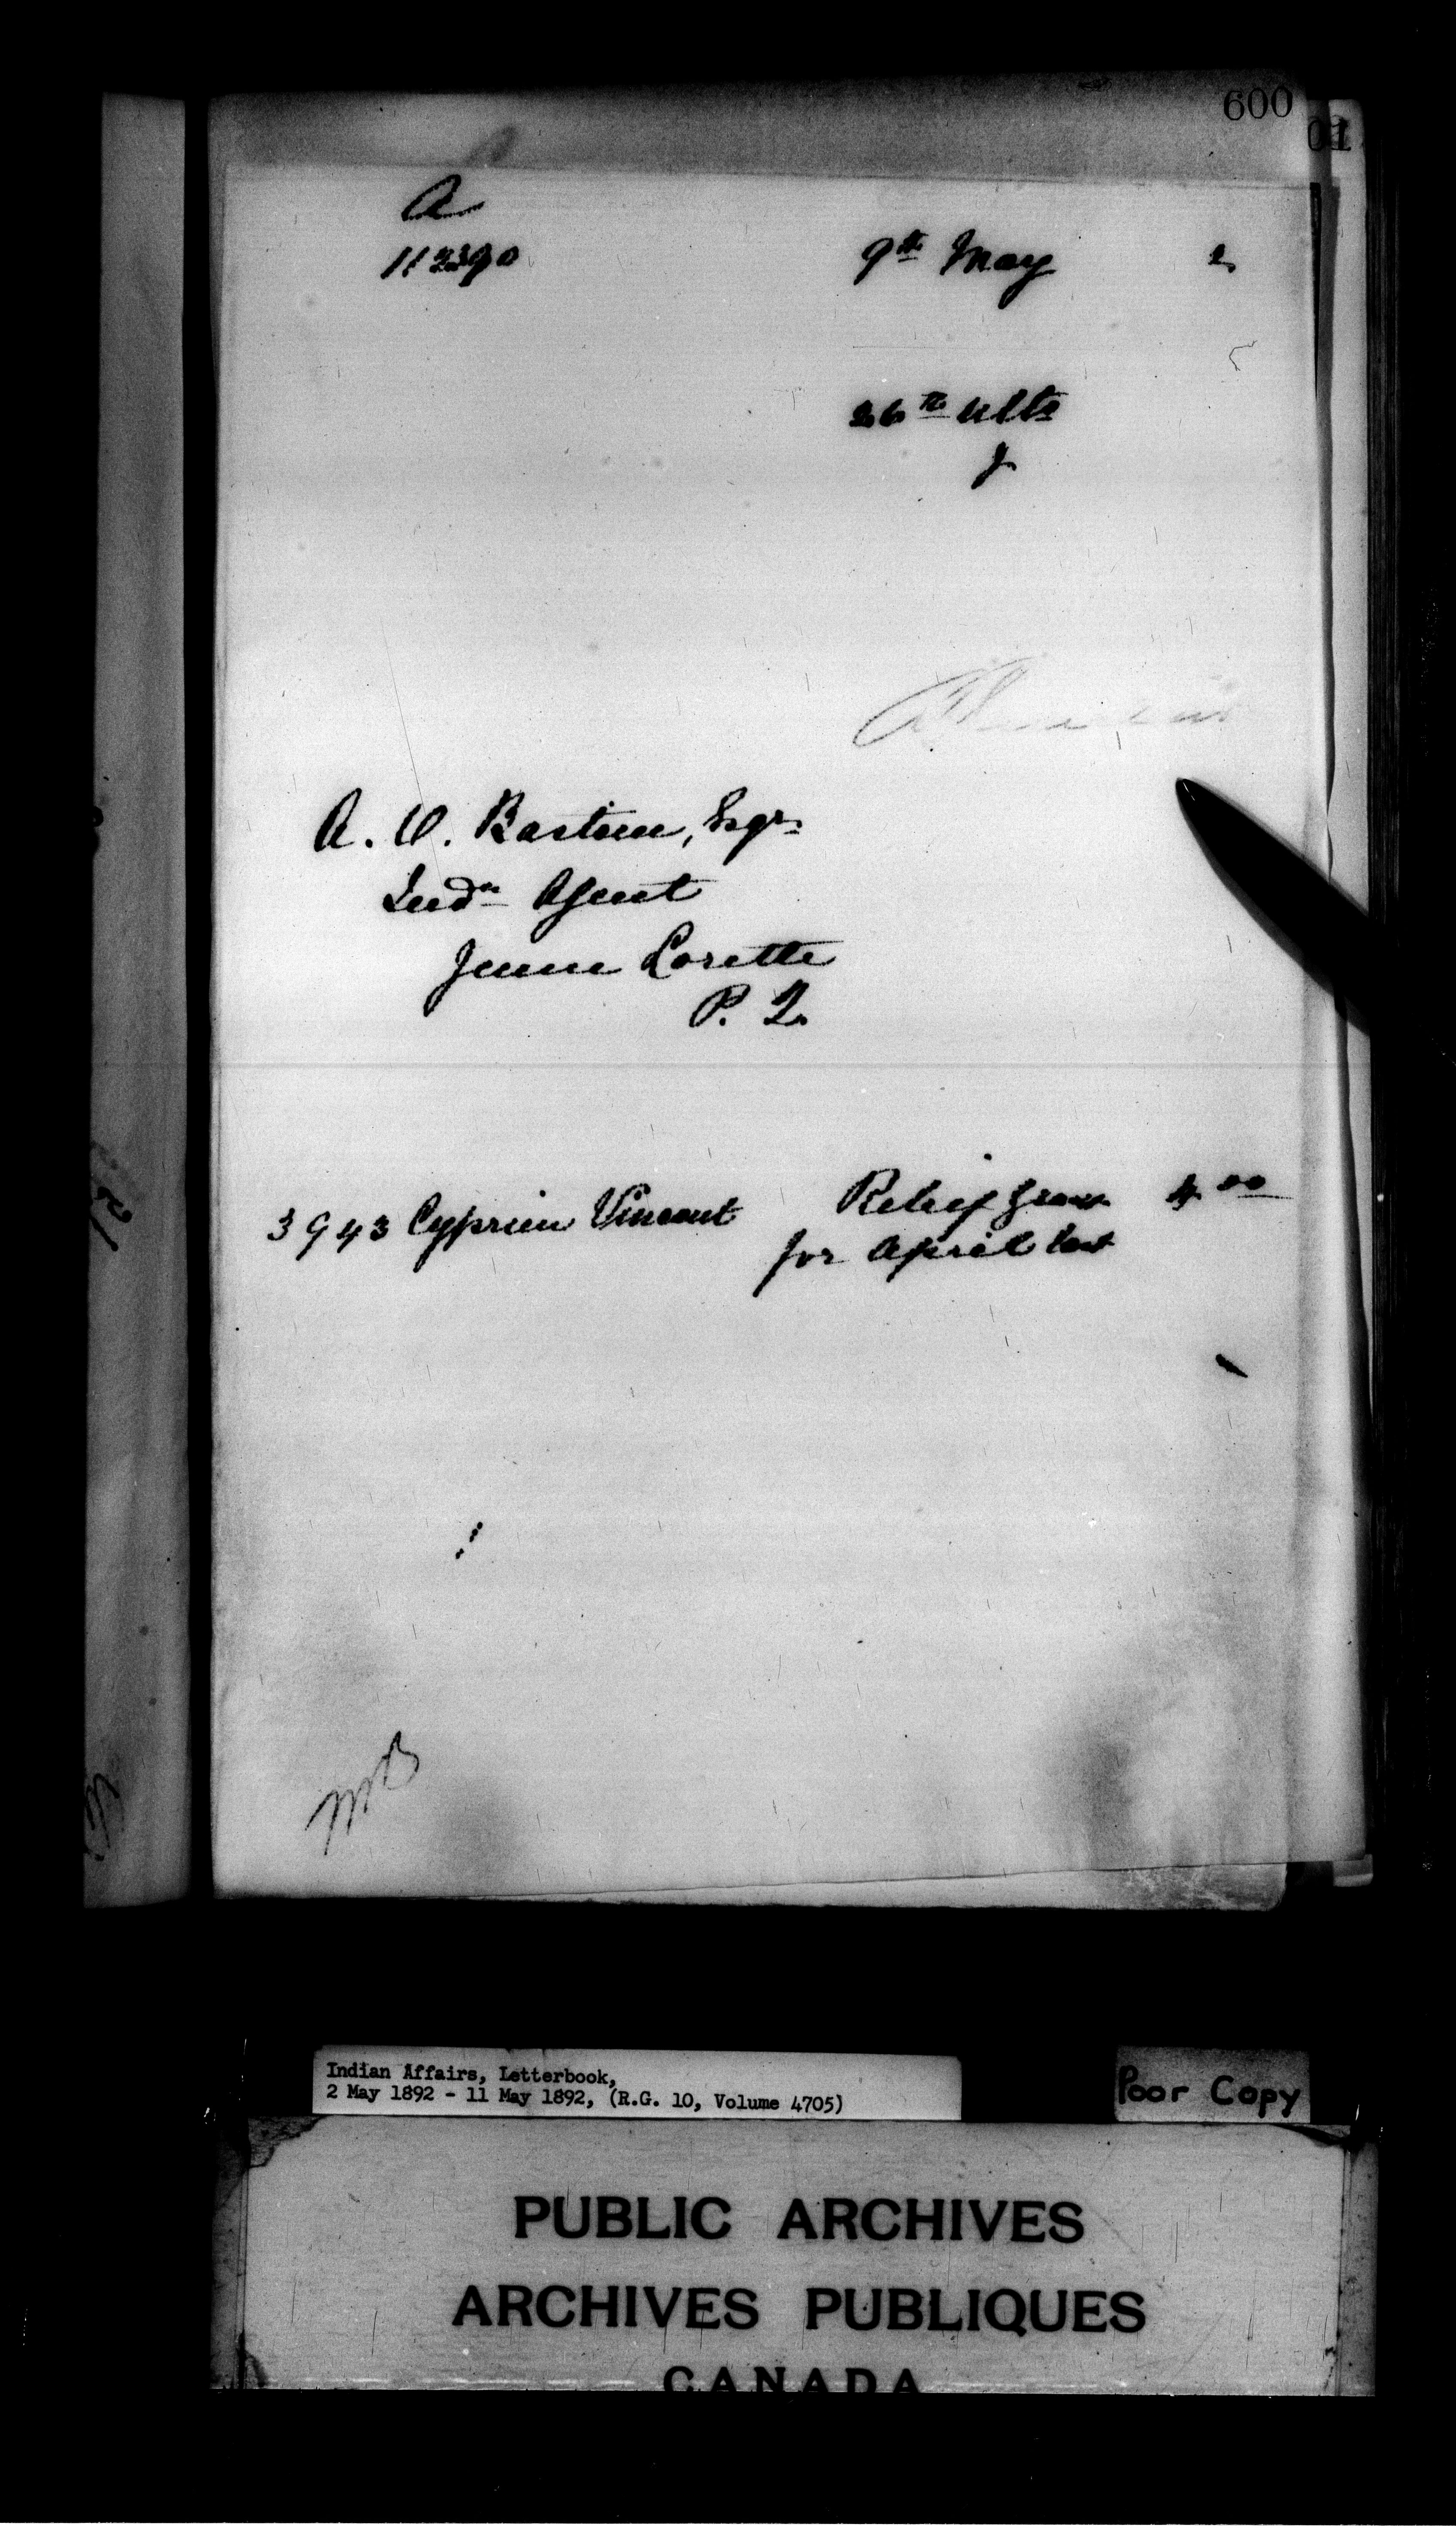 600
01
A
9th May 2
26th ulto
A. O. Bastien, Esqr.
Indn Agent
Jeune Lorette
P. Q.
3943 Cyprien Vincent Relief grant 4 00
for April last
MB
Indian Affairs, Letterbook,
2 May 1892 - 11 May 1892, (R.G. 10, Volume 4705)
Poor Copy
PUBLIC ARCHIVES
ARCHIVES PUBLIQUES
CANADA